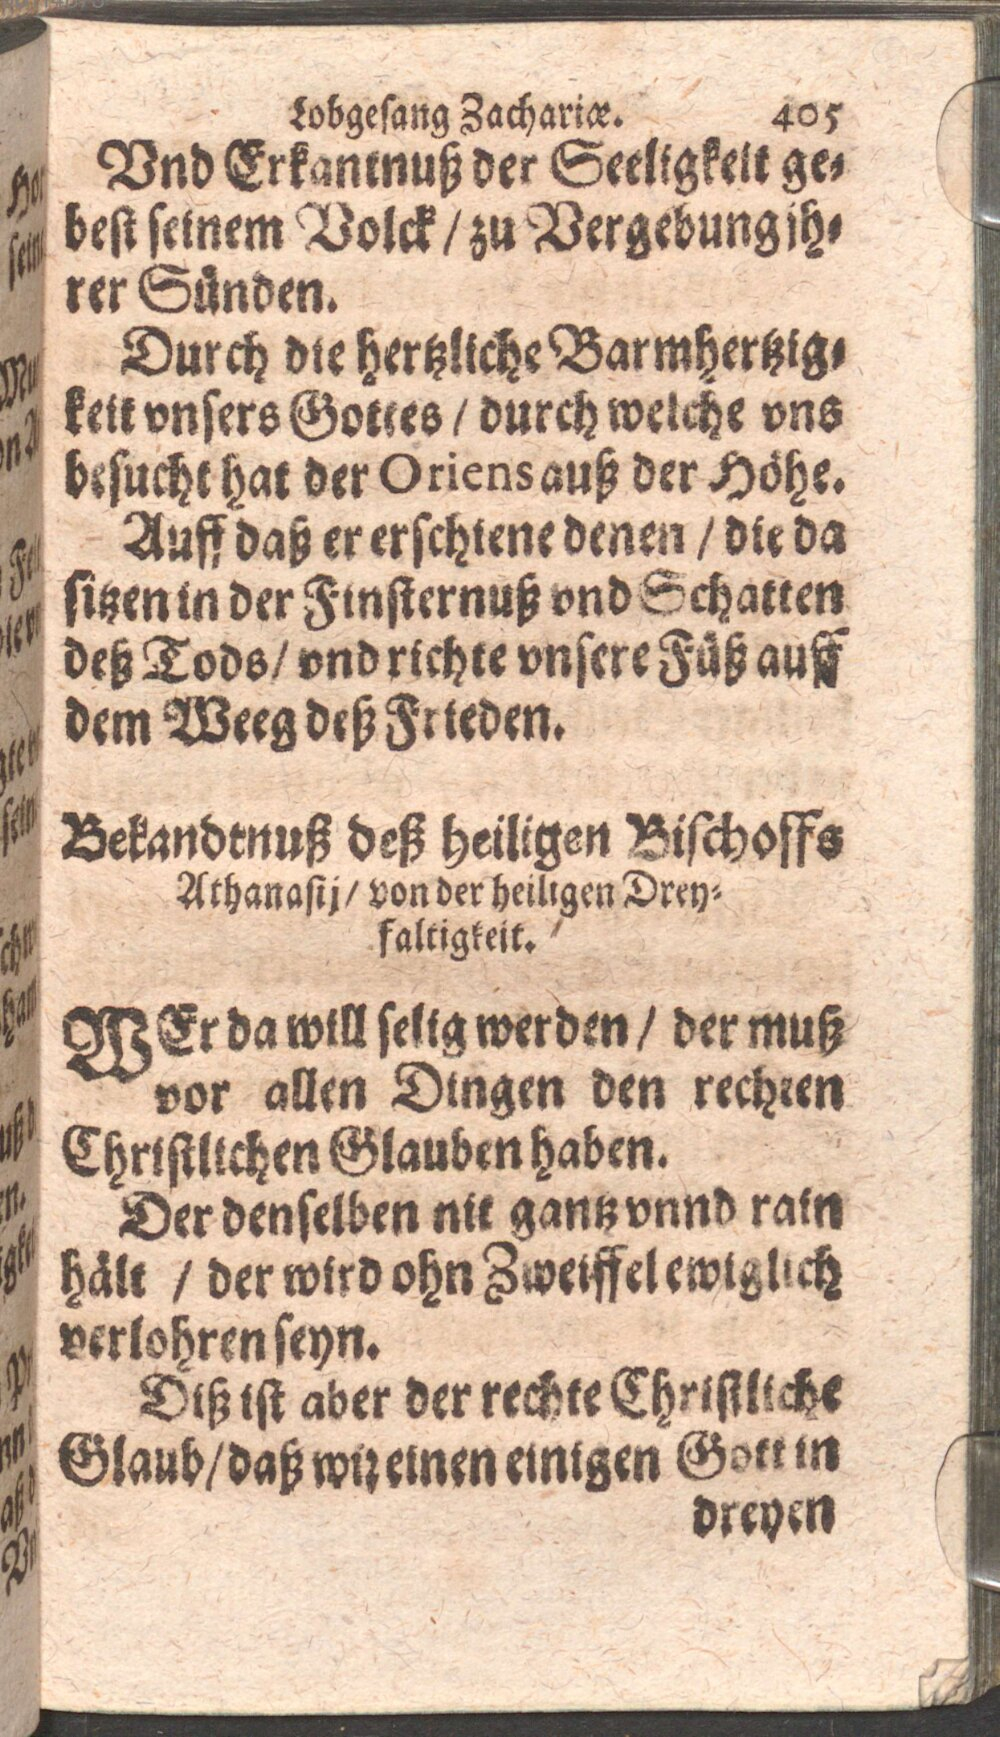 Lobgesang Zachariæ. 405
Vnd Erkantnuß der Seeligkeit ge-
best seinem Volck / zu Vergebung jh-
rer Sünden.
Durch die hertzliche Barmhertzig-
keit vnsers Gottes / durch welche vns
besucht hat der Oriens auß der Höhe.
Auff daß er erschiene denen / die da
sitzen in der Finsternuß vnd Schatten
deß Tods / vnd richte vnsere Füß auff
dem Weeg deß Frieden.
Bekandtnuß deß heiligen Bischoffs
Athanasij / von der heiligen Drey-
faltigkeit.
WEr da will selig werden / der muß
vor allen Dingen den rechten
Christlichen Glauben haben.
Der denselben nit gantz vnnd rain
hält / der wird ohn Zweiffel ewiglich
verlohren seyn.
Diß ist aber der rechte Christliche
Glaub / daß wir einen einigen Gott in
dreyen